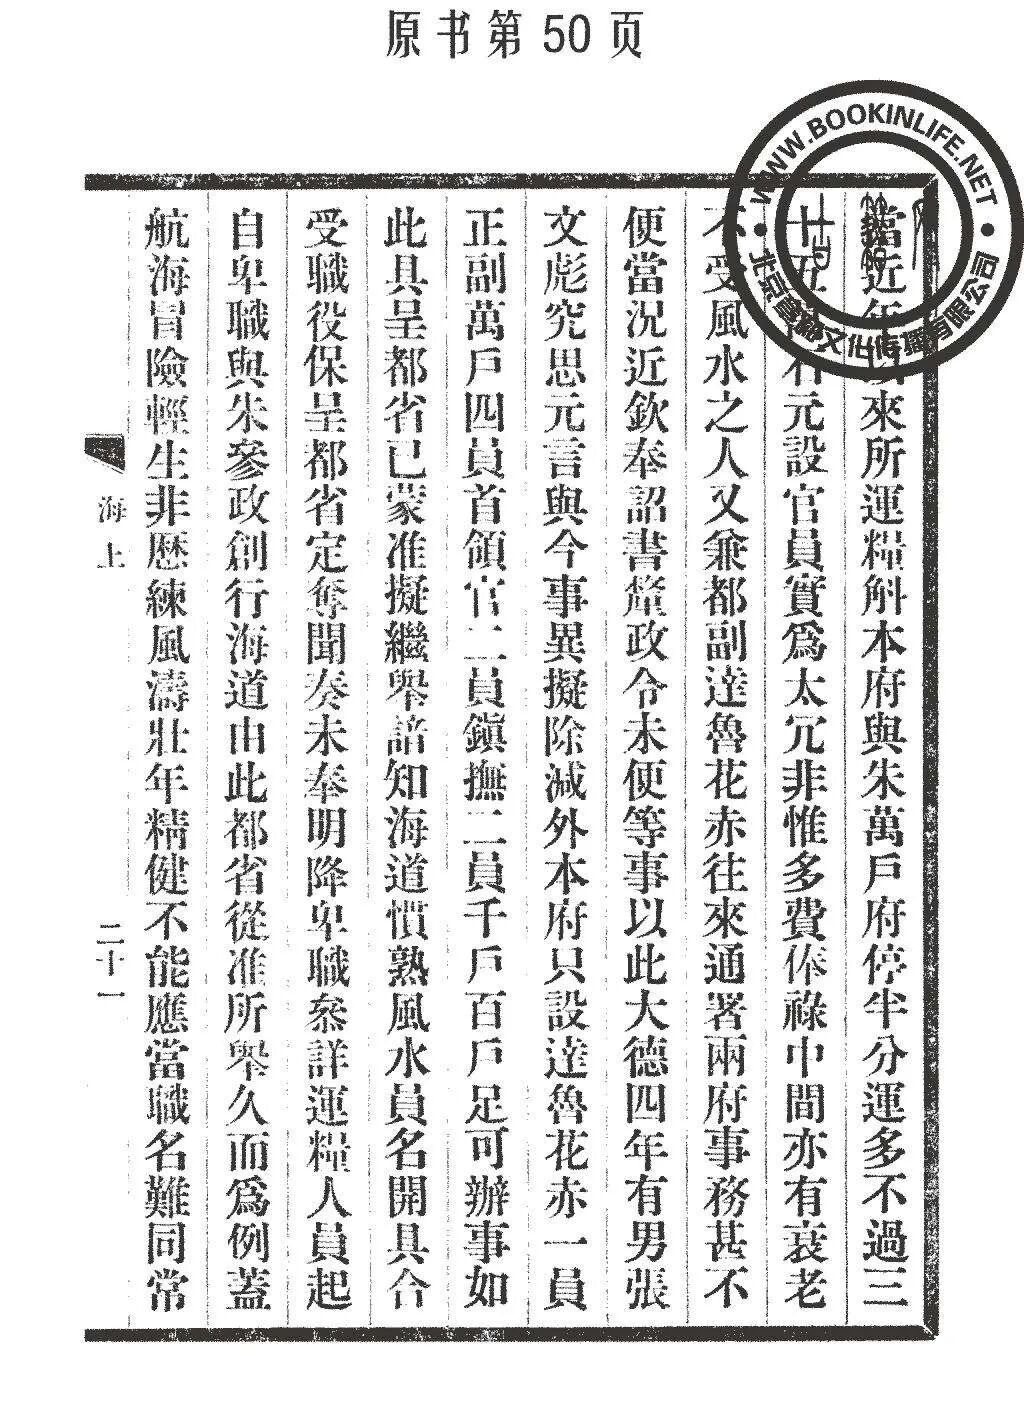 原书第50页
WWW.BOOKINLIFE.NET
北京書同文化传播有限公司
當近年以來所運糧斛本府與朱萬戶府停半分運多不過三
十五萬石元設官員實爲太冗非惟多費俸祿中間亦有衰老
不受風水之人又兼都副達魯花赤往來通署兩府事務甚不
便當況近欽奉詔書釐政令未便等事以此大德四年有男張
文彪究思元言與今事異擬除減外本府只設達魯花赤一員
正副萬戶四員首領官二員鎮撫二員千戶百戶足可辦事如
此具呈都省已蒙准擬繼舉諳知海道慣熟風水員名開具合
受職役保呈都省定奪聞奏未奉明降卑職叅詳運糧人員起
自卑職與朱參政創行海道由此都省從准所舉久而爲例蓋
航海冒險輕生非歴練風濤壯年精健不能應當職名難同常
海上
二十一